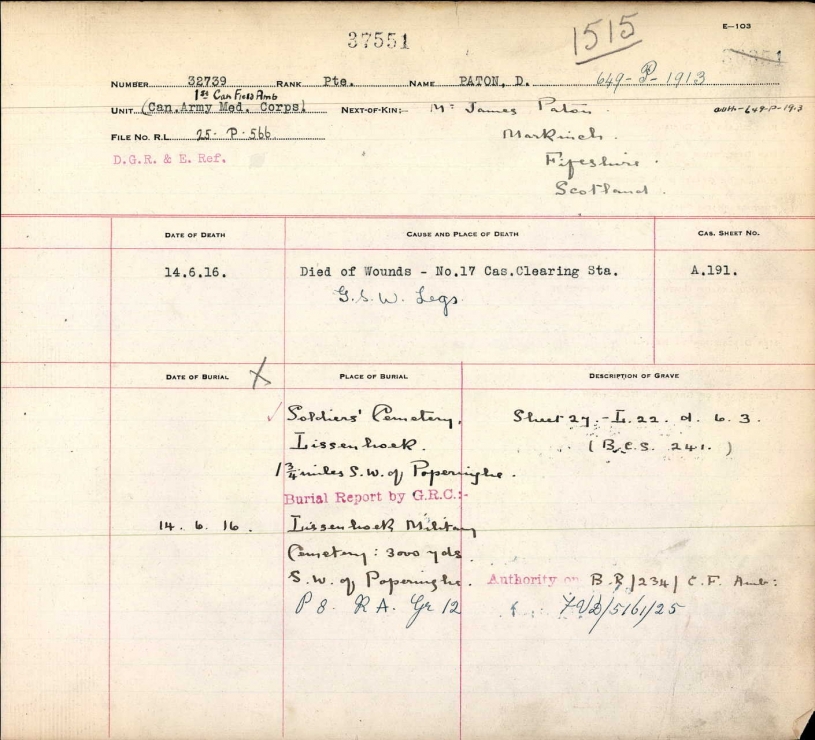 37551
1515
E-103
NUMBER 32739 RANK Pte. NAME PATON, D. 649-P-1913
1st Can Field Amb
UNIT (Can.Army Med. Corps) NEXT-OF-KIN:- Mr James Paton
auth-649-P-1913
FILE No. R.L. 25-P-566
Markinch.
D.G.R. & E. Ref.
Fifeshire.
Scotland.
DATE OF DEATH CAUSE AND PLACE OF DEATH CAS. SHEET No.
14.6.16. Died of Wounds - No.17 Cas.Clearing Sta. A.191.
G.S.W. Legs
DATE OF BURIAL X PLACE OF BURIAL DESCRIPTION OF GRAVE
✓ Soldiers' Cemetery, Sheet 27.-L.22.d.6.3.
Lissenhoek. (B.C.S. 241.)
1 3/4 miles S.W. of Poperinghe.
Burial Report by G.R.C.:-
14.6.16. Lissenhoek Military
Cemetery: 3000 yds
S.W. of Poperinghe. Authority on B.R/234/C.F. Amb:
P 8. R A. Gr 12